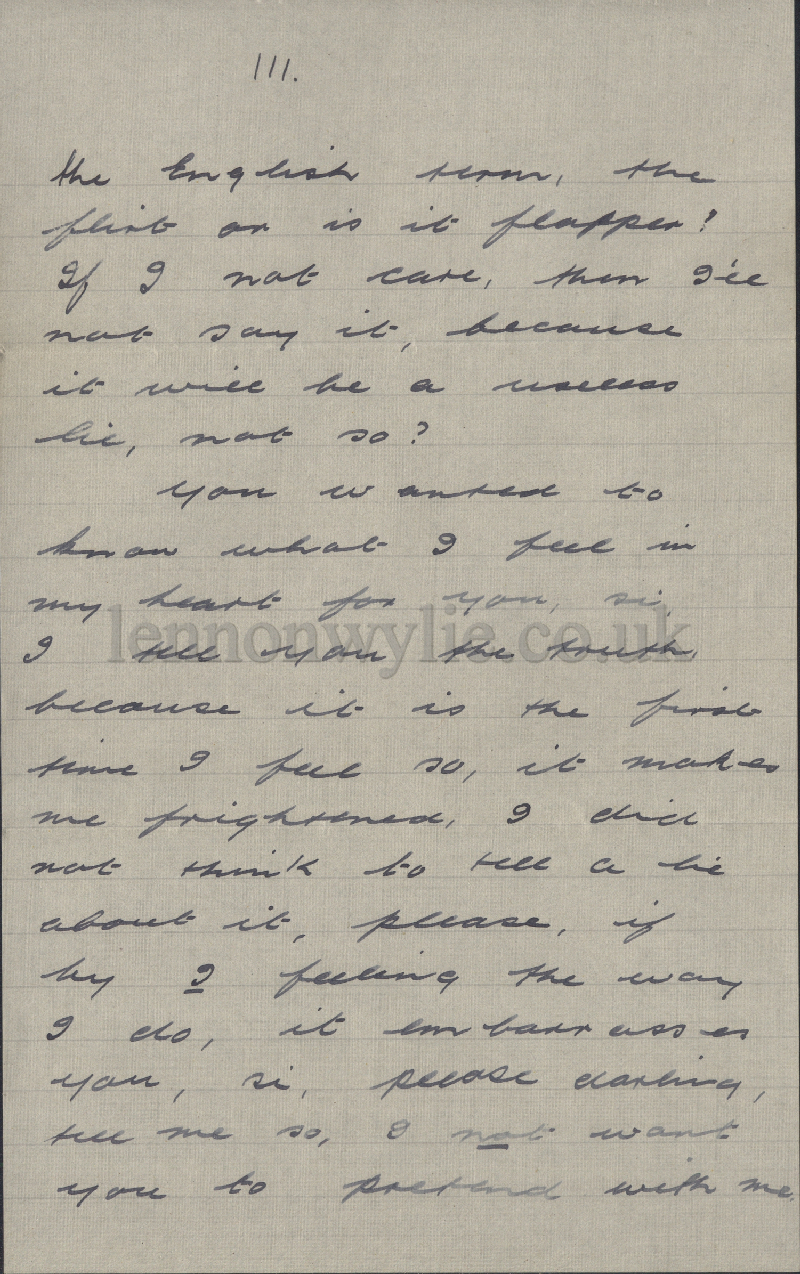 III.
the English term, the
flirt or is it flapper!
If I not care, then I'll
not say it, because
it will be a useless
lie, not so?
You wanted to
know what I feel in
my heart for you, si,
lennonwylie.co.uk
I tell you the truth,
because it is the first
time I feel so, it makes
me frightened, I did
not think to tell a lie
about it, please, if
by I feeling the way
I do, it embarrasses
you, si, please darling,
tell me so, I not want
you to pretend with me.